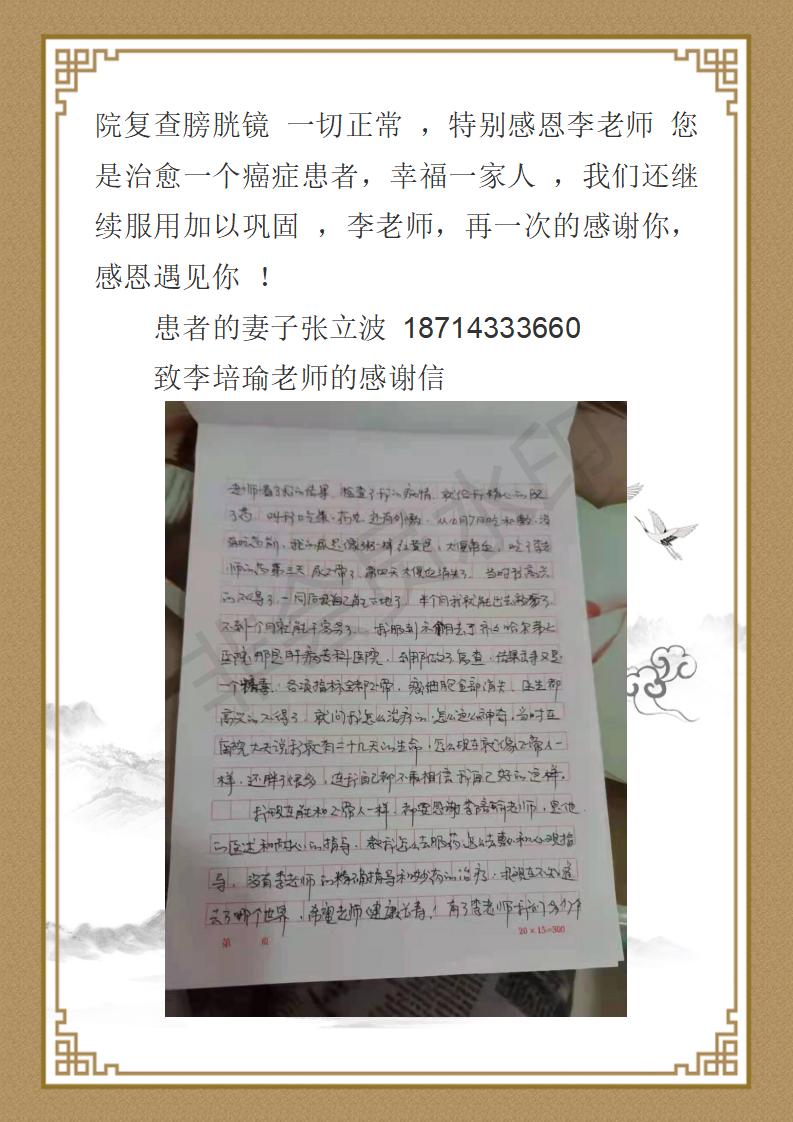 院复查膀胱镜 一切正常 ，特别感恩李老师 您
是治愈一个癌症患者，幸福一家人 ，我们还继
续服用加以巩固 ，李老师，再一次的感谢你，
感恩遇见你 ！
患者的妻子张立波 18714333660
致李培瑜老师的感谢信
老师看了我的结果，检查了我的病情，就给我精心的配
了药，叫我口吃
师的药第三天尿正常了，第四天大便也消失了，当时我高兴
的不得了，一周后我自己能下地了，半个月我就能出去
不到一个月就能干家务了，我
医院那是肝病专科医院，到那做了复查，结果
一个，各项指标全都正常，腹积全部消失，医生都
高兴的不得了，就问我怎么治疗的，怎么这么神奇，当时在
医院大夫说我最有二十几天的生命，怎么现在就像正常人一
样，还胖了很多，连我自己都不敢相信我自己好的这样。
我现在能和正常人一样，都要感谢李培瑜老师，是他
的医述和耐心的指导，教我怎么去服药怎么去敷和心观指
导，没有李老师的精确指导和妙药的治疗，我现在不知道
去了哪个世界，希望老师健康长寿！有了李老师我们
第 页
20×15=300
非会员水印